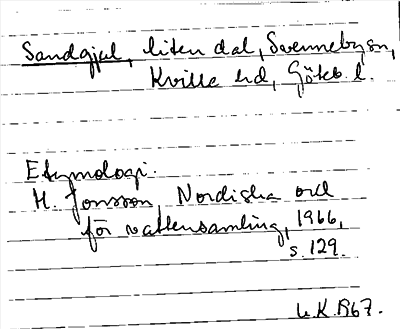 Sandgjal, liten dal, Svennebysn,
Kville hd, Göteb. l.
Etymologi:
H. Jonsson, Nordiska ord
för vattensamling, 1966,
s. 129.
U.K. 1967.